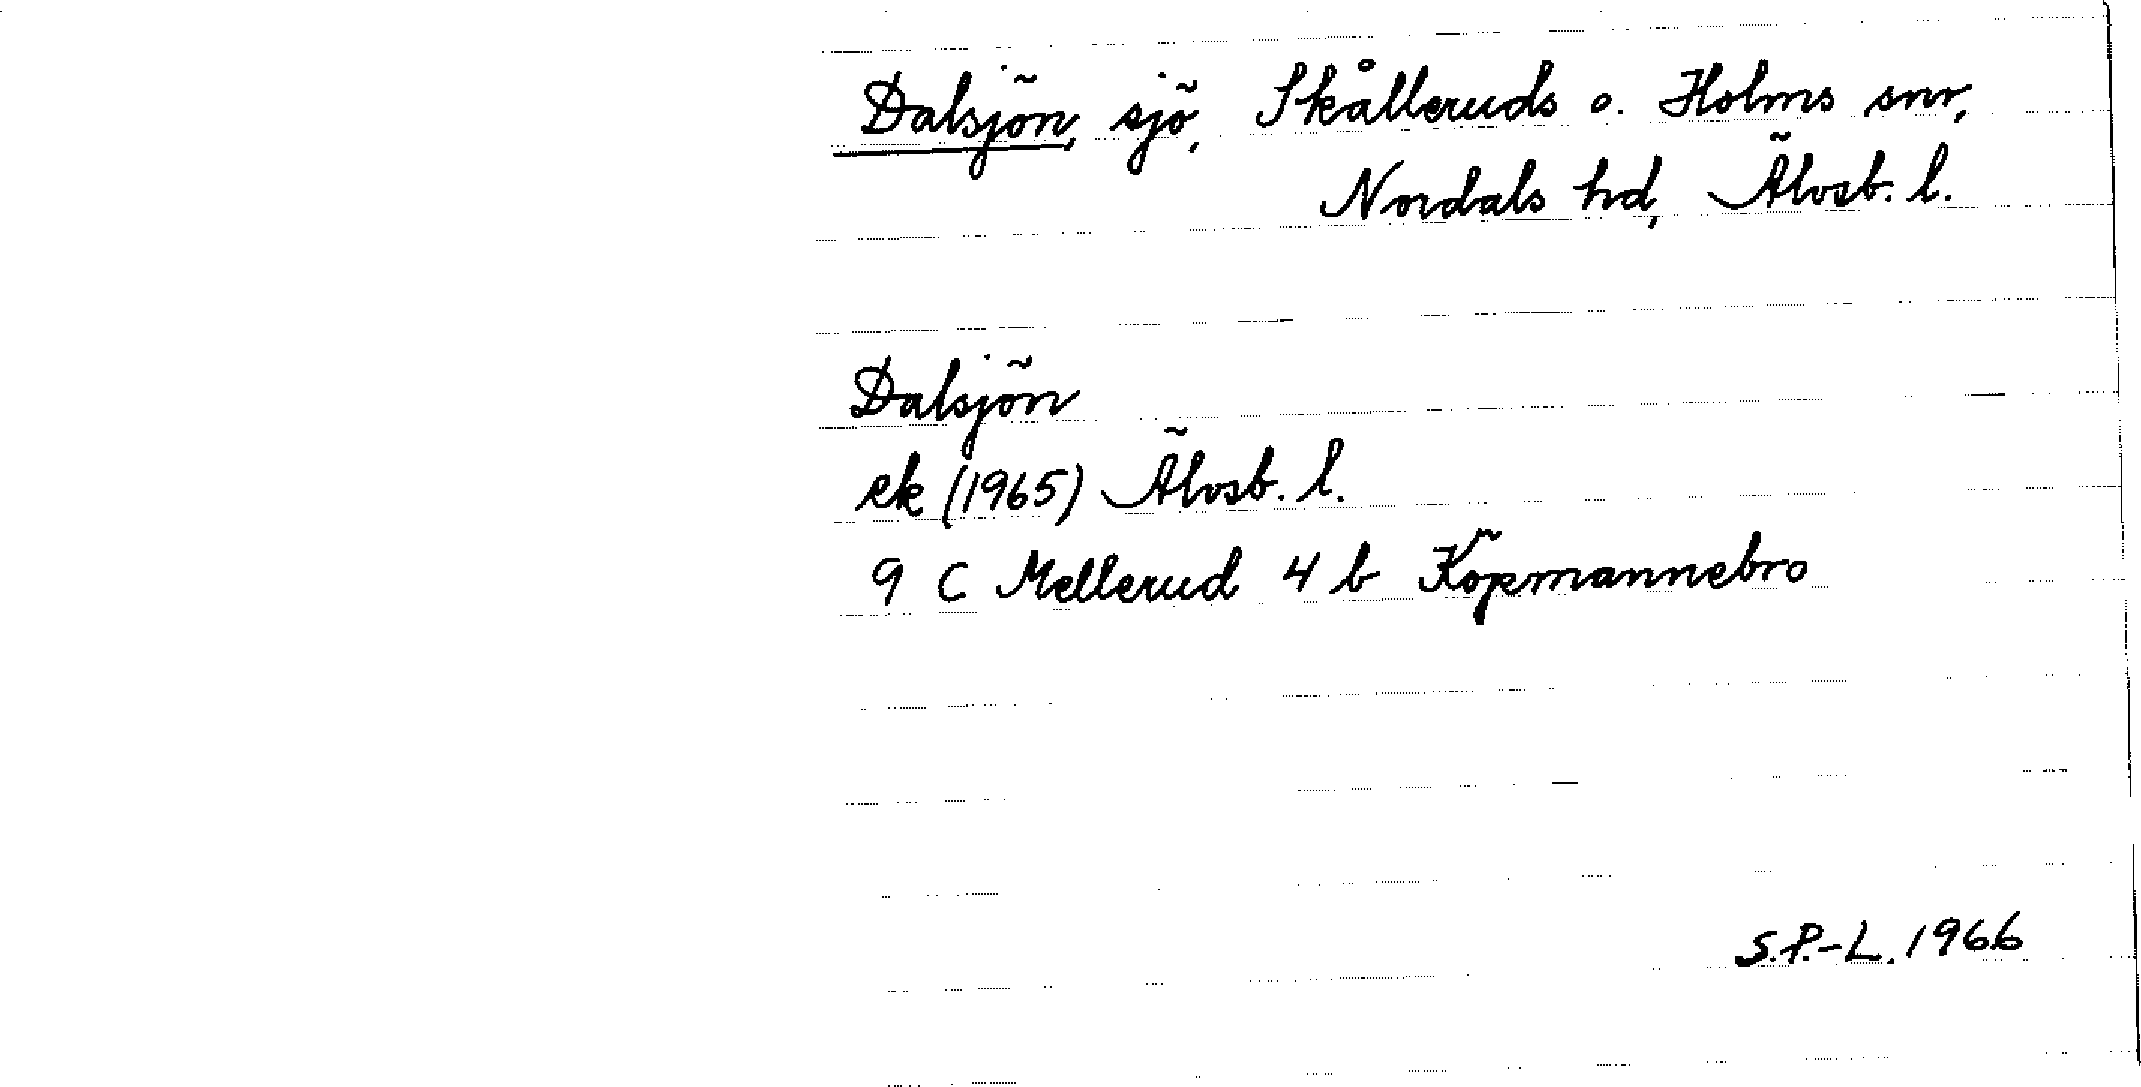 Dalsjön, sjö, Skålleruds o. Holms snr,
Nordals hd, Älvsb. l.
Dalsjön
ek (1965) Älvsb. l.
9 C Mellerud 4 b Köpmannebro
S.P.-L. 1966